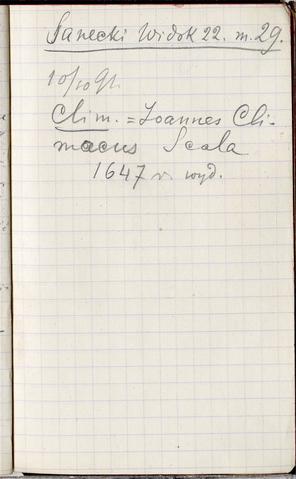 Sanecki Widok 22. m. 29.
10/10 91.
Clim. = Joannes Cli-
macus Scala
1647 r. wyd.